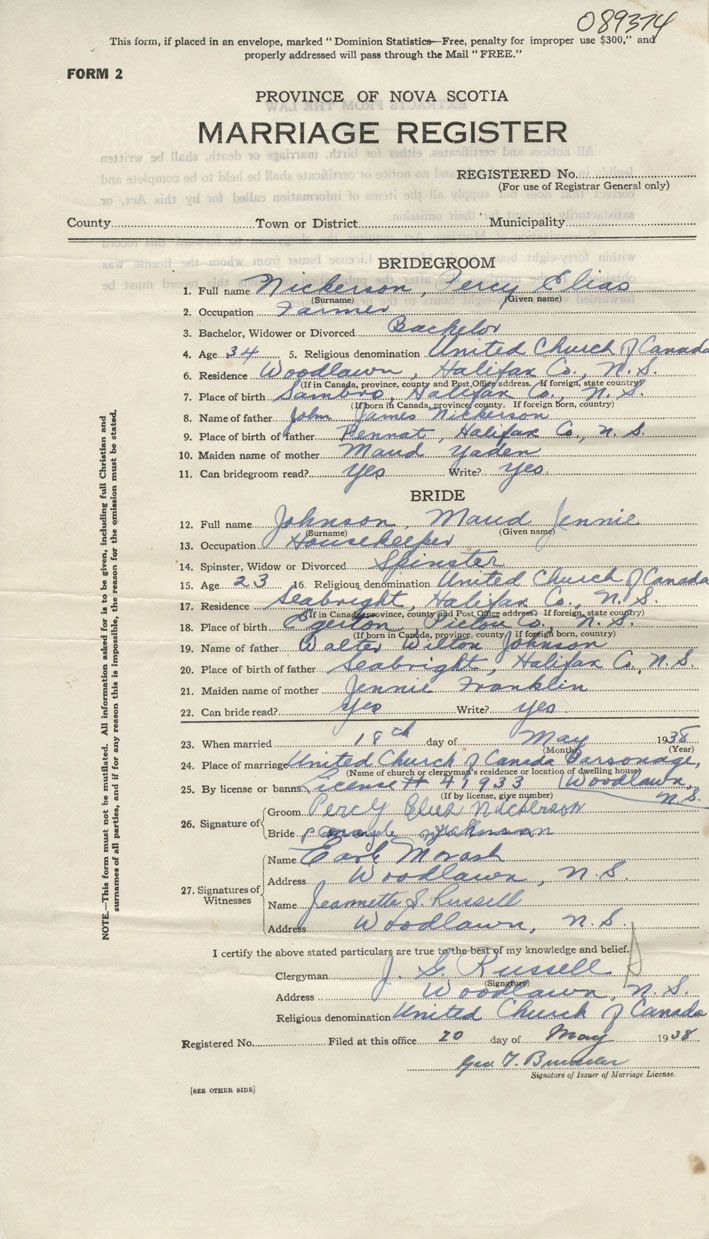 089374
This form, if placed in an envelope, marked "Dominion Statistics—Free, penalty for improper use $300," and
properly addressed will pass through the Mail "FREE."
FORM 2
PROVINCE OF NOVA SCOTIA
MARRIAGE REGISTER
REGISTERED No.
(For use of Registrar General only)
County Town or District Municipality
BRIDEGROOM
1. Full name Nickerson, Percy Elias
(Surname) (Given name)
2. Occupation Farmer
3. Bachelor, Widower or Divorced Bachelor
4. Age 34 5. Religious denomination United Church of Canada
6. Residence Woodlawn, Halifax Co., N. S.
(If in Canada, province, county and Post Office address. If foreign, state country)
7. Place of birth Sambro, Halifax Co., N. S.
(If born in Canada, province, county. If foreign born, country)
8. Name of father John James Nickerson
9. Place of birth of father Pennat, Halifax Co., N. S.
10. Maiden name of mother Maud Yaden
11. Can bridegroom read? Yes Write? Yes
BRIDE
12. Full name Johnson, Maud Jennie
(Surname) (Given name)
13. Occupation Housekeeper
14. Spinster, Widow or Divorced Spinster
15. Age 23 16. Religious denomination United Church of Canada
17. Residence Seabright, Halifax Co., N. S.
(If in Canada, province, county and Post Office address. If foreign, state country)
18. Place of birth Egerton, Pictou Co., N. S.
(If born in Canada, province, county. If foreign born, country)
19. Name of father Walter Wilton Johnson
20. Place of birth of father Seabright, Halifax Co., N. S.
21. Maiden name of mother Jennie Franklin
22. Can bride read? Yes Write? Yes
23. When married 18th day of May 1938
(Month) (Year)
24. Place of marriage United Church of Canada Parsonage,
(Name of church or clergyman's residence or location of dwelling house)
25. By license or banns License # 41933 Woodlawn,
(If by license, give number) N. S.
26. Signature of Groom Percy Elias Nickerson
Bride Johnson
27. Signatures of Witnesses
Name Earl Morash
Address Woodlawn, N. S.
Name Jeannette S. Russell
Address Woodlawn, N. S.
I certify the above stated particulars are true to the best of my knowledge and belief.
Clergyman J. G. Russell
(Signature)
Address Woodlawn, N. S.
Religious denomination United Church of Canada
Registered No. Filed at this office 20 day of May 1938
Geo. T.
Signature of Issuer of Marriage License.
[SEE OTHER SIDE]
NOTE.—This form must not be mutilated. All information asked for is to be given, including full Christian and
surnames of all parties, and if for any reason this is impossible, the reason for the omission must be stated.